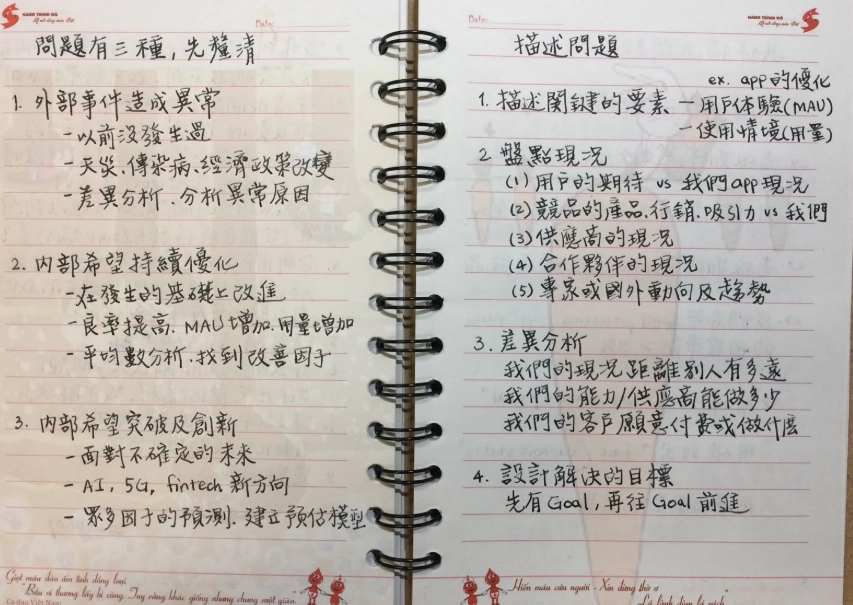 HÀNH TRÌNH ĐỎ
Date:
問題有三種,先釐清
1. 外部事件造成異常
-以前沒發生過
-天災、傳染病、經濟政策改變
-差異分析、分析異常原因
2. 內部希望持續優化
-在發生的基礎上改進
-良率提高、MAU增加、用量增加
-平均數分析、找到改善因子
3. 內部希望突破及創新
-面對不確定的未來
- AI, 5G, fintech 新方向
- 眾多因子的預測、建立預估模型
Giọt máu đào ấm tình đồng loại
"Bầu ơi thương lấy bí cùng, Tuy rằng khác giống nhưng chung một giàn.
Ca dao Việt Nam
Date:
HÀNH TRÌNH ĐỎ
描述問題
ex. app的優化
1. 描述關鍵的要素 -用戶体驗(MAU)
-使用情境(用量)
2. 盤點現況
(1) 用戶的期待 vs 我們app現況
(2) 競品的產品、行銷、吸引力 vs 我們
(3) 供應商的現況
(4) 合作夥伴的現況
(5) 專家或國外動向及趨勢
3. 差異分析
我們的現況距離別人有多遠
我們的能力/供應商能做多少
我們的客戶願意付費或做什麼
4. 設計解決的目標
先有Goal,再往Goal前進
Hiến máu cứu người - Xin đừng thờ ơ